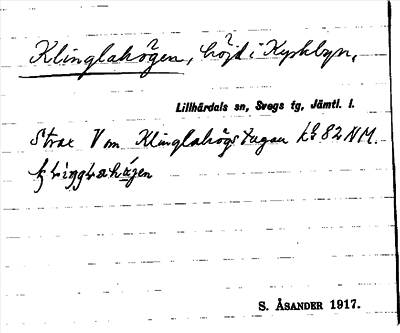 Klinglahögen, höjd i Kyrkbyn.
Lillhärdals sn, Svegs tg, Jämtl. l.
Strax V om Klinglahögstugan kb 82 NM.
S. ÅSANDER 1917.